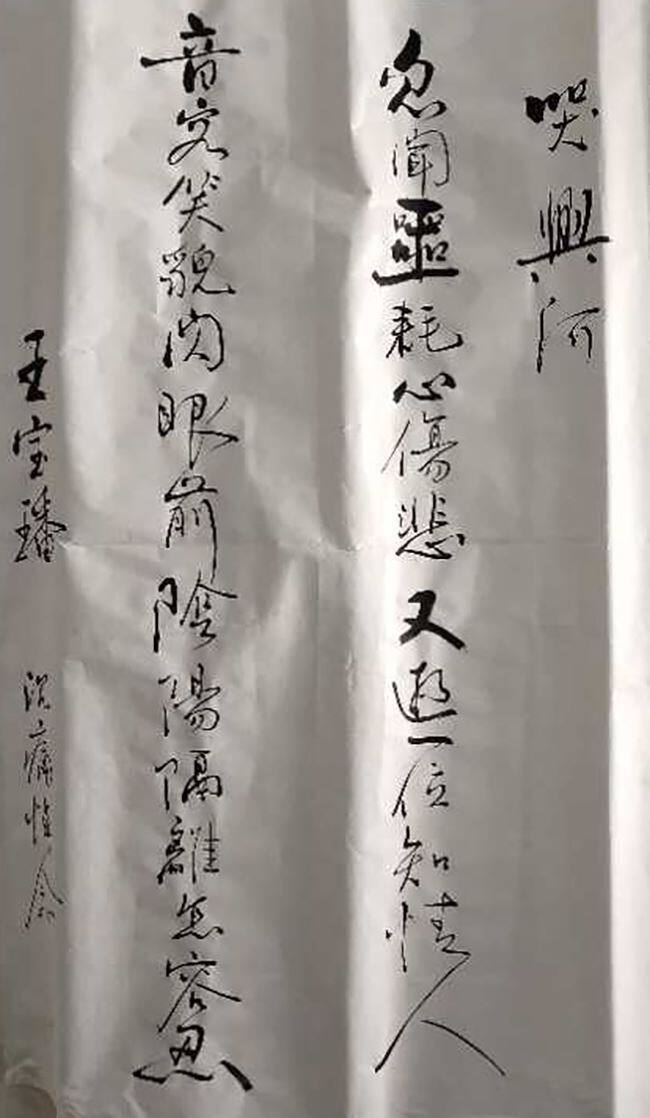 哭興河
忽聞噩耗心傷悲又逝一位知情人
音容笑貌闪眼前陰陽隔離怎容忍
王宝璠
沉痛悼念